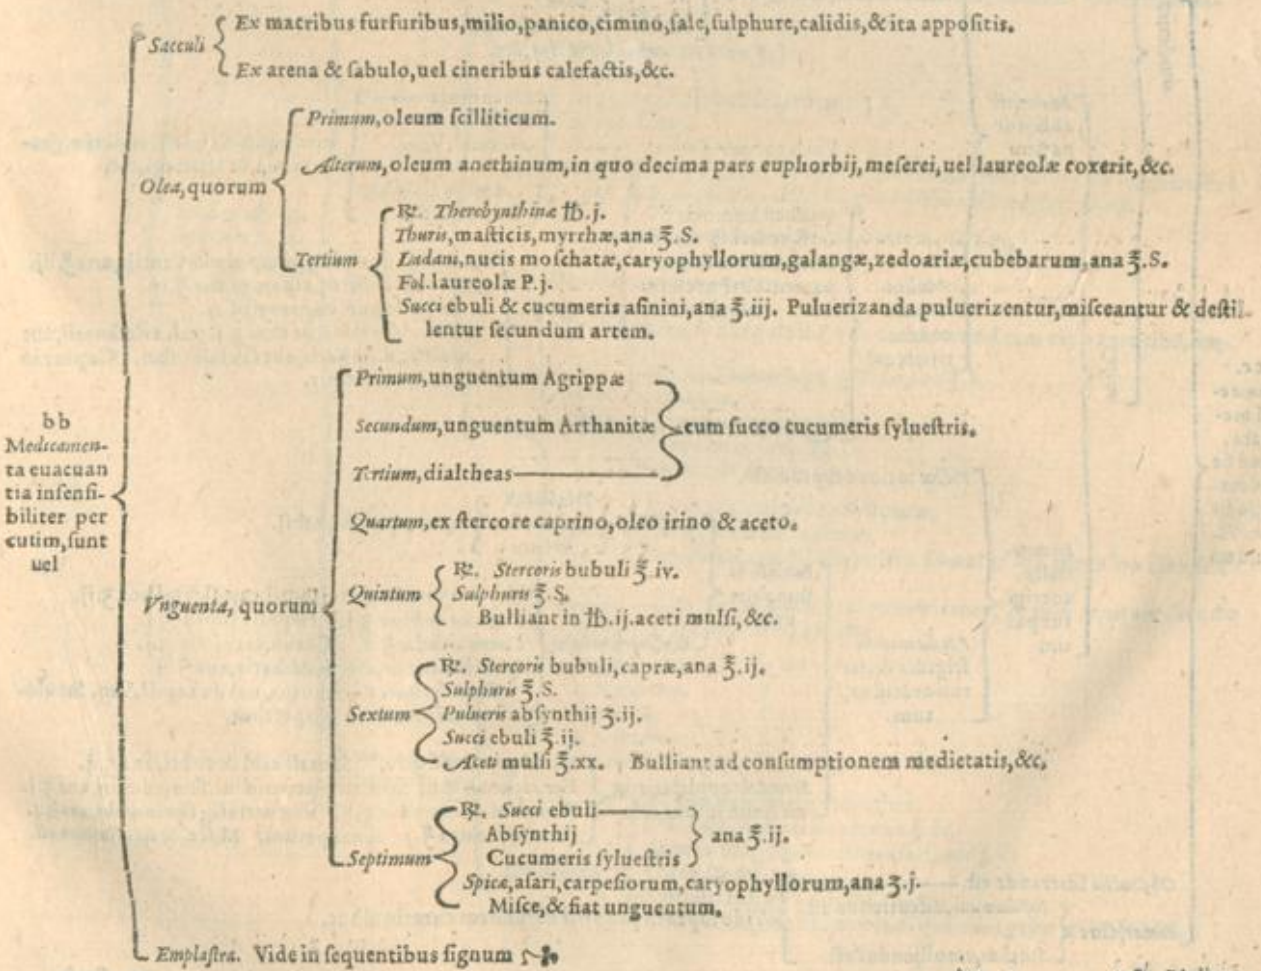 Sacculi
Ex macribus furfuribus,milio,panico,cimino,ſale,ſulphure,calidis,& ita appoſitis.
Ex arena & ſabulo,uel cineribus calefactis,&c.
Olea,quorum
Primum,oleum ſcilliticum.
Alterum,oleum anethinum,in quo decima pars euphorbij,meſerei,uel laureolæ coxerit,&c.
Tertium
℞. Therebynthinæ ℔.j.
Thuris,maſticis,myrrhæ,ana ℥.S.
Ladani,nucis moſchatæ,caryophyllorum,galangæ,zedoariæ,cubebarum,ana ℥.S.
Fol.laureolæ P.j.
Succi ebuli & cucumeris aſinini,ana ℥.iij. Puluerizanda puluerizentur,miſceantur & deſtil
lentur ſecundum artem.
bb
Medicamen-
ta euacuan
tia inſenſi-
biliter per
cutim,ſunt
uel
Vnguenta, quorum
Primum,unguentum Agrippæ
Secundum,unguentum Arthanitæ
Tertium,dialtheas
cum ſucco cucumeris ſylueſtris.
Quartum,ex ſtercore caprino,oleo irino & aceto.
Quintum
℞. Stercoris bubuli ℥.iv.
Sulphuris ℥.S.
Bulliant in ℔.ij.aceti mulſi,&c.
Sextum
℞. Stercoris bubuli,capræ,ana ℥.ij.
Sulphuris ℥.S.
Pulueris abſynthij ʒ.ij.
Succi ebuli ℥.ij.
Aceti mulſi ℥.xx. Bulliant ad conſumptionem medietatis,&c.
Septimum
℞. Succi ebuli
Abſynthij
Cucumeris ſylueſtris
ana ℥.ij.
Spicæ,aſari,carpeſiorum,caryophyllorum,ana ʒ.j.
Miſce,& fiat unguentum.
Emplaſtra. Vide in ſequentibus ſignum